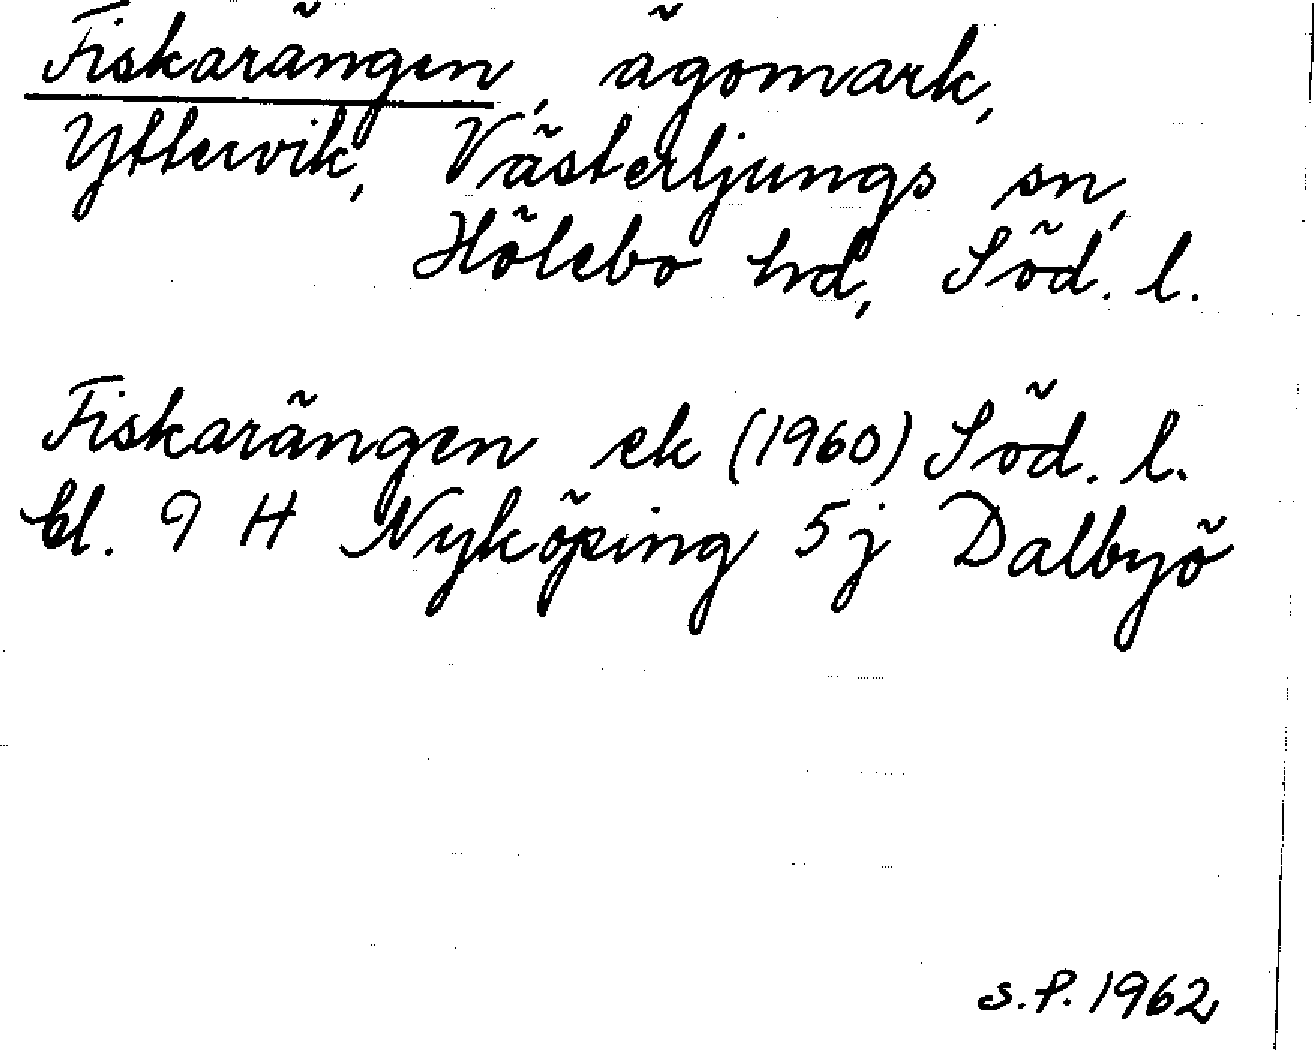 Fiskarängen, ägomark,
Yttervik, Västerljungs sn,
Hölebo hd, Söd. l.
Fiskarängen ek (1960) Söd. l.
bl. 9 H Nyköping 5 j Dalbyö
S.P. 1962